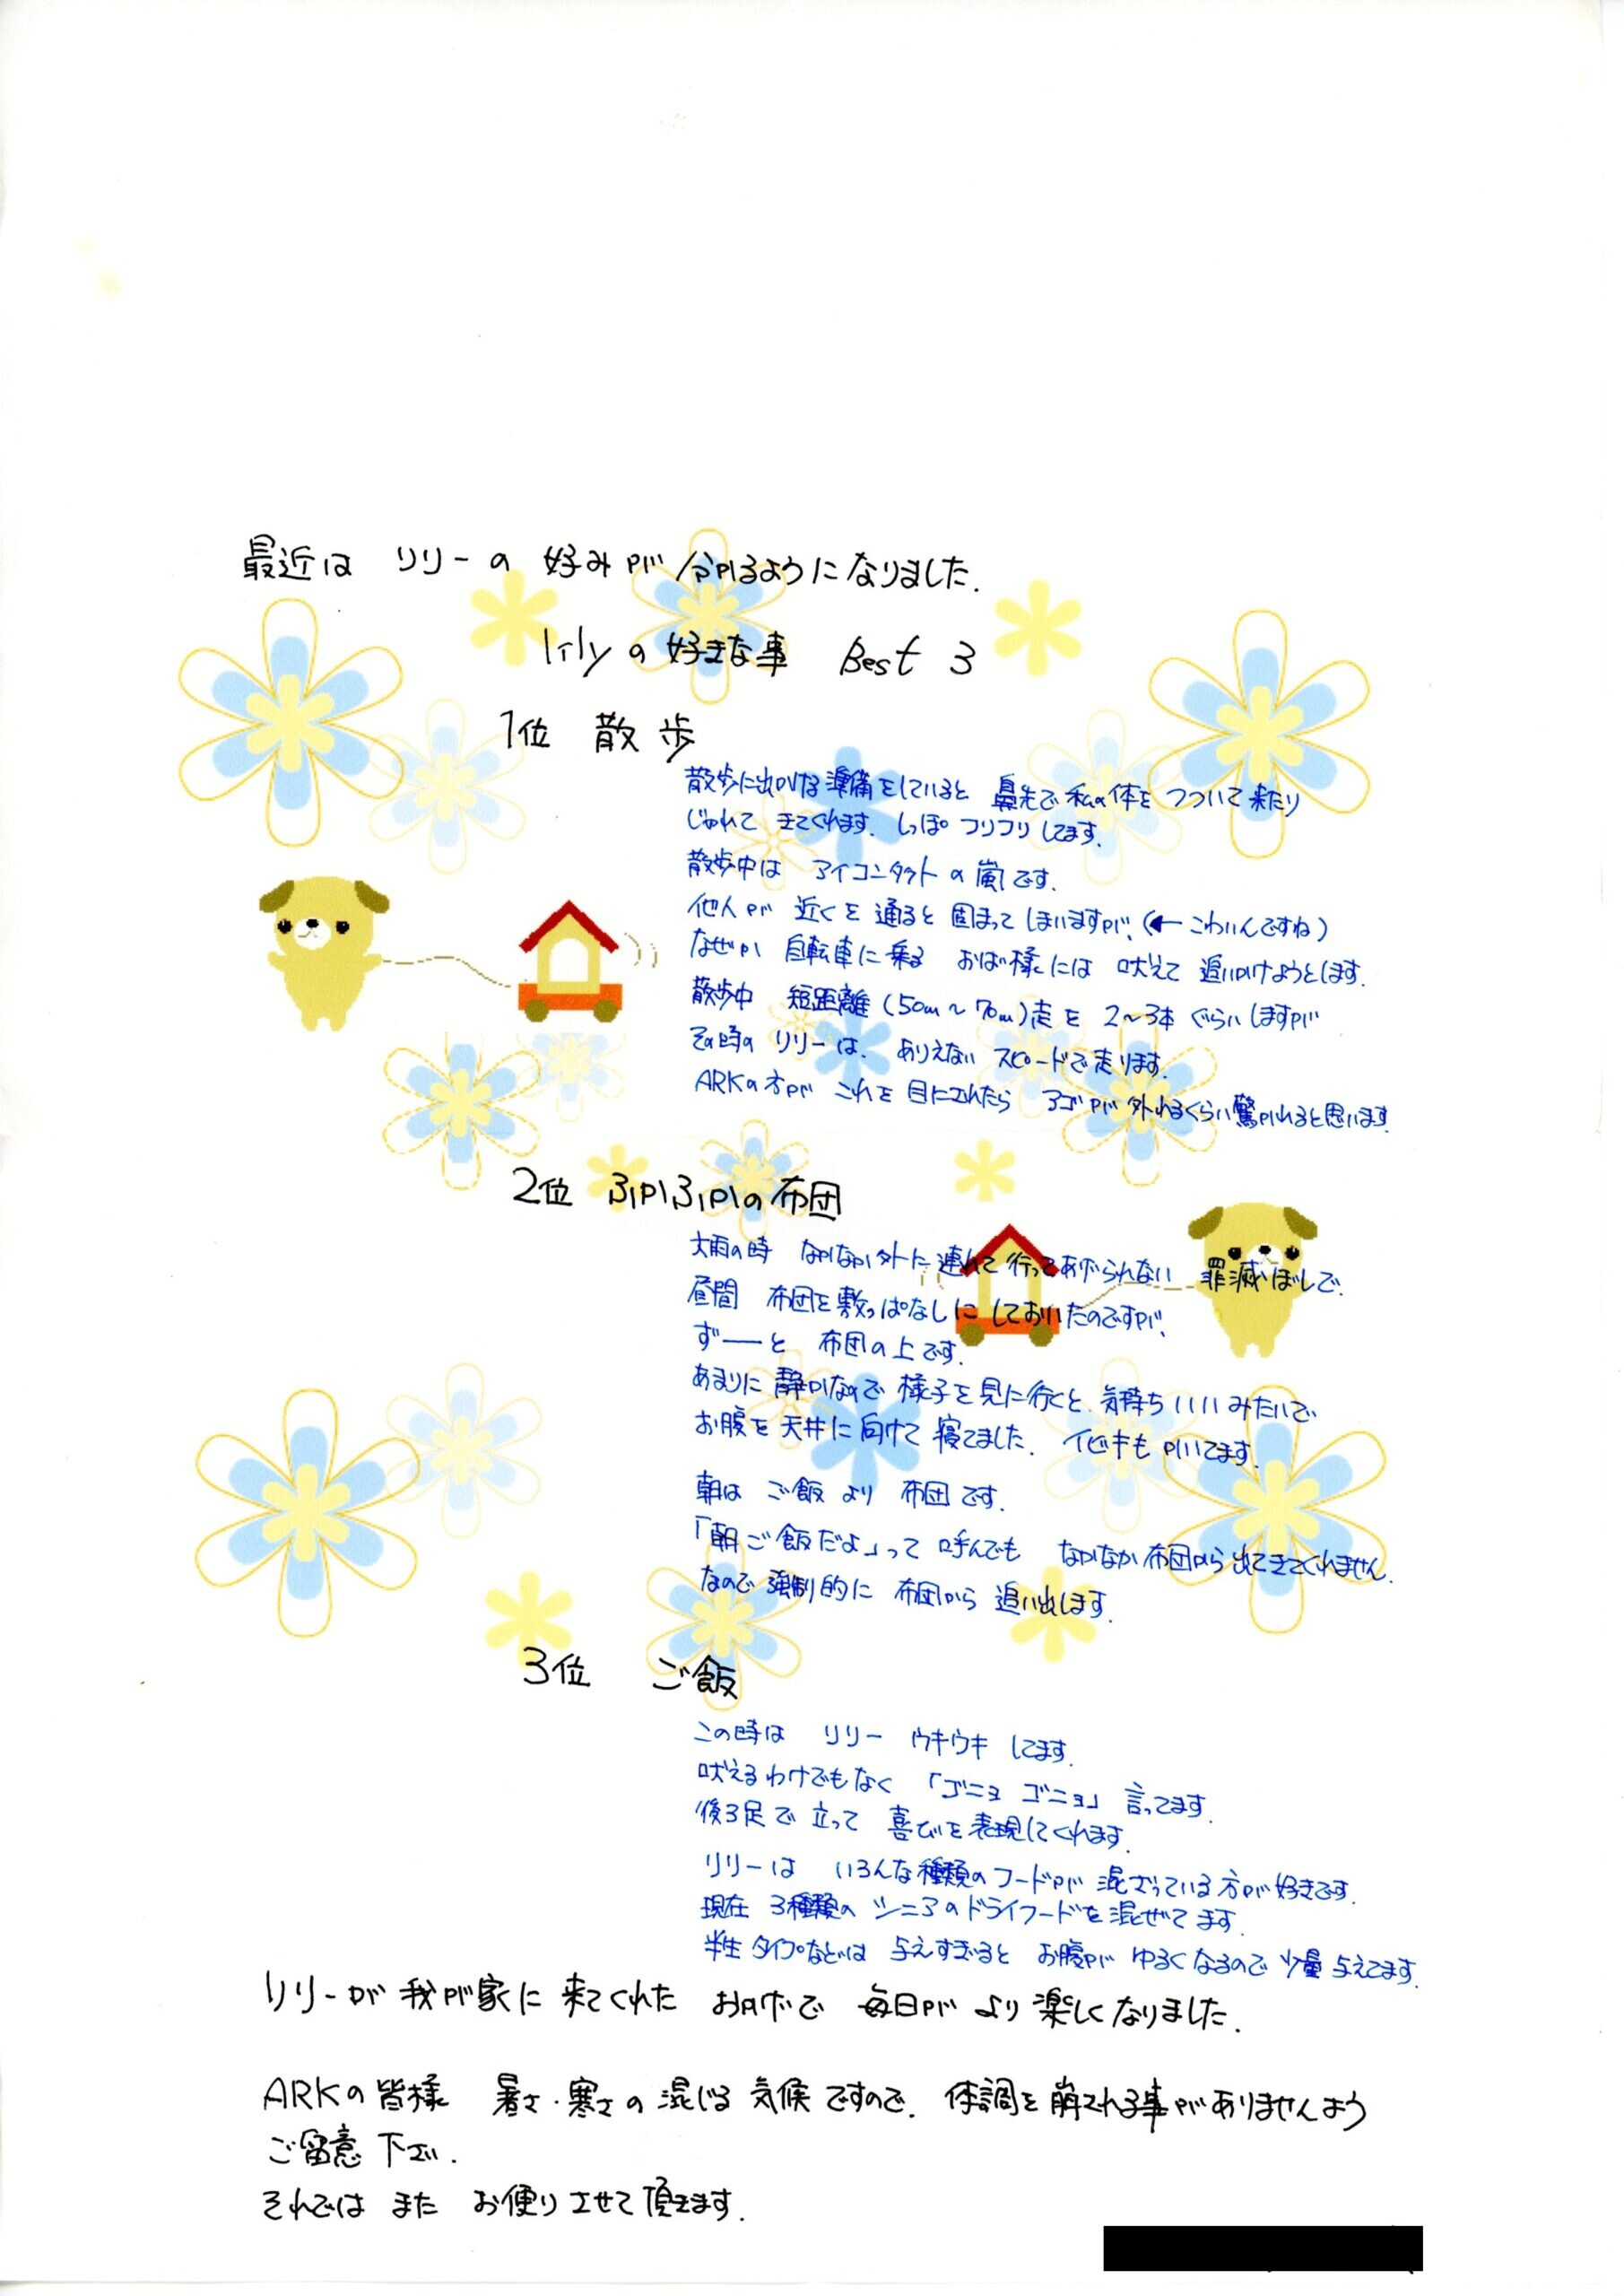 最近は リリーの 好みが 分かるようになりました.
lilyの好きな事 Best 3
1位 散歩
散歩に出かける準備をしていると 鼻先で私の体をつついて来たり
じゃれて きてくれます. しっぽ フリフリ してます.
散歩中は アイコンタクト の 嵐です.
他人が 近くを通ると 固まって しまいますが、(← こわいんですね)
なぜか 自転車に乗る おば様には 吠えて 追いかけようとします.
散歩中 短距離 (50m～70m)走を 2～3本 ぐらい しますが
その時の リリーは、ありえない スピードで走ります.
ARKの方が これを 目にされたら アゴが外れるくらい驚かれると思います
2位 ふかふかの布団
大雨の時 なかなか外に連れて行ってあげられない 罪滅ぼしで、
昼間 布団を敷っぱなしに しておいたのですが、
ず――と 布団の上です.
あまりに静かなので 様子を見に行くと、気持ちいいみたいで
お腹を天井に向けて 寝てました. イビキもかいてます.
朝は ご飯より 布団です.
「朝ご飯だよ」って 呼んでも なかなか布団から出てきてくれません.
なので強制的に 布団から 追い出します.
3位 ご飯
この時は リリー ウキウキ してます.
吠えるわけでもなく 「ゴニョ ゴニョ」 言ってます.
後ろ足で立って 喜びを表現してくれます.
リリーは いろんな種類のフードが 混ざっている方が好きです.
現在 3種類の シニアのドライフードを混ぜてます.
半生タイプなどは 与えすぎると お腹が ゆるくなるので少量与えてます.
リリーが 我が家に 来てくれた おかげで 毎日が より楽しくなりました.
ARKの皆様 暑さ・寒さの混じる気候ですので、体調を崩される事がありませんよう
ご留意 下さい.
それでは また お便りさせて頂きます.